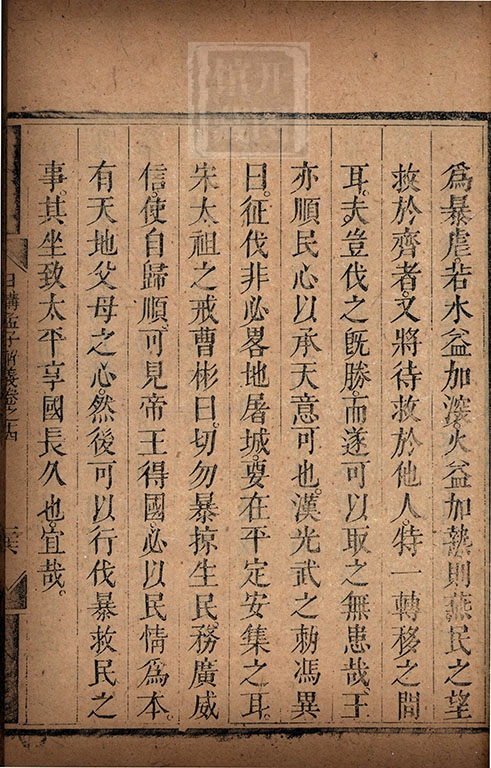 爲暴虐。若水益加深。火益加熱。則燕民之望
救於齊者。又將待救於他人。特一轉移之間
耳。夫豈伐之旣勝。而遂可以取之無患哉。王
亦順民心以承天意可也。漢光武之勑馮異
曰。征伐非必畧地屠城。要在平定安集之耳。
宋太祖之戒曹彬曰。切勿暴掠生民。務廣威
信。使自歸順。可見帝王得國。必以民情爲本。
有天地父母之心。然後可以行伐暴救民之
事。其坐致太平享國長久也。宜哉。
日講孟子解義卷之十四